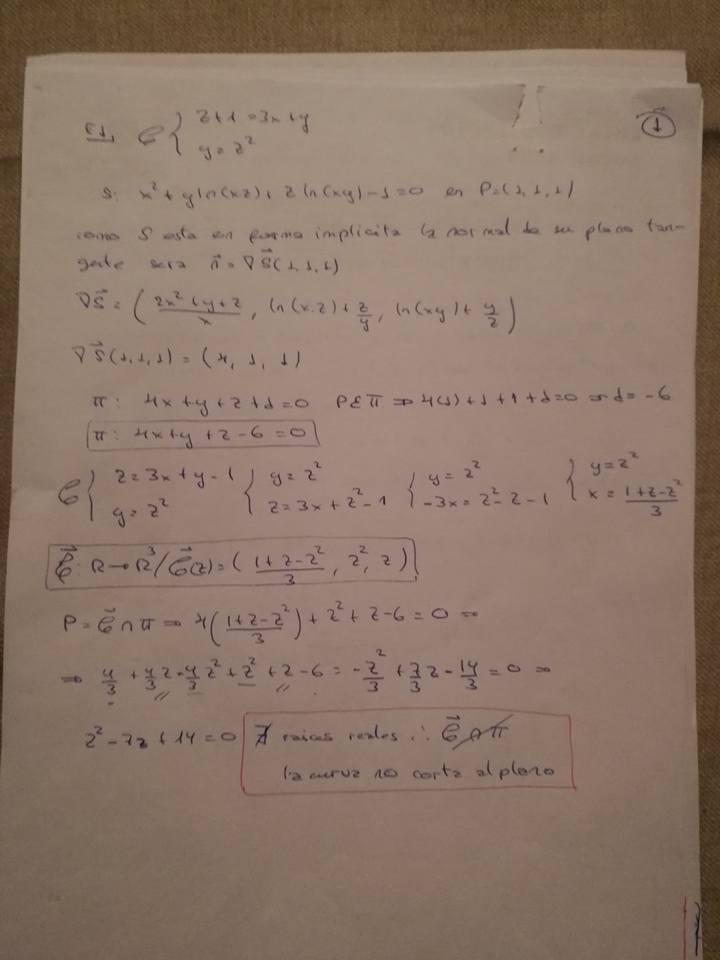 ①
E1, C { z+1=3x+y
y=z²
S: x²+yln(xz)+zln(xy)-1=0 en P=(1,1,1)
como S esta en forma implicita la normal de su plano tan-
gente sera n⃗=∇S⃗(1,1,1)
∇S⃗=((2x²+y+z)/x, ln(x.z)+z/y, ln(xy)+y/z)
∇S⃗(1,1,1)=(4, 1, 1)
π: 4x+y+z+d=0 P∈π ⇒ 4(1)+1+1+d=0 ⇒ d=-6
π: 4x+y+z-6=0
C { z=3x+y-1 { y=z² { y=z² { y=z²
y=z² z=3x+z²-1 -3x=z²-z-1 x=(1+z-z²)/3
C⃗: R→R³/C⃗(z)=((1+z-z²)/3, z², z)
P=C⃗∩π ⇒ 4((1+z-z²)/3)+z²+z-6=0 ⇒
⇒ 4/3+4/3z-4/3z²+z²+z-6=-z²/3+7/3z-14/3=0 ⇒
z²-7z+14=0 ∄ raices reales ∴ C⃗∩π
la curva no corta al plano